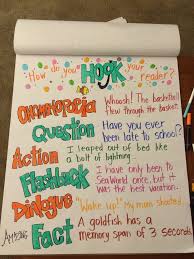 How do you Hook your reader?
Onomatopoeia Whoosh! The basketball
flew through the basket.
Question Have you ever
been late to school?
Action I leaped out of bed like
a bolt of lightning...
Flashback I have only been to
SeaWorld once, but it
was the best vacation.
Dialogue "Wake up!" my mom shouted.
Amazing Fact A goldfish has a
memory span of 3 seconds